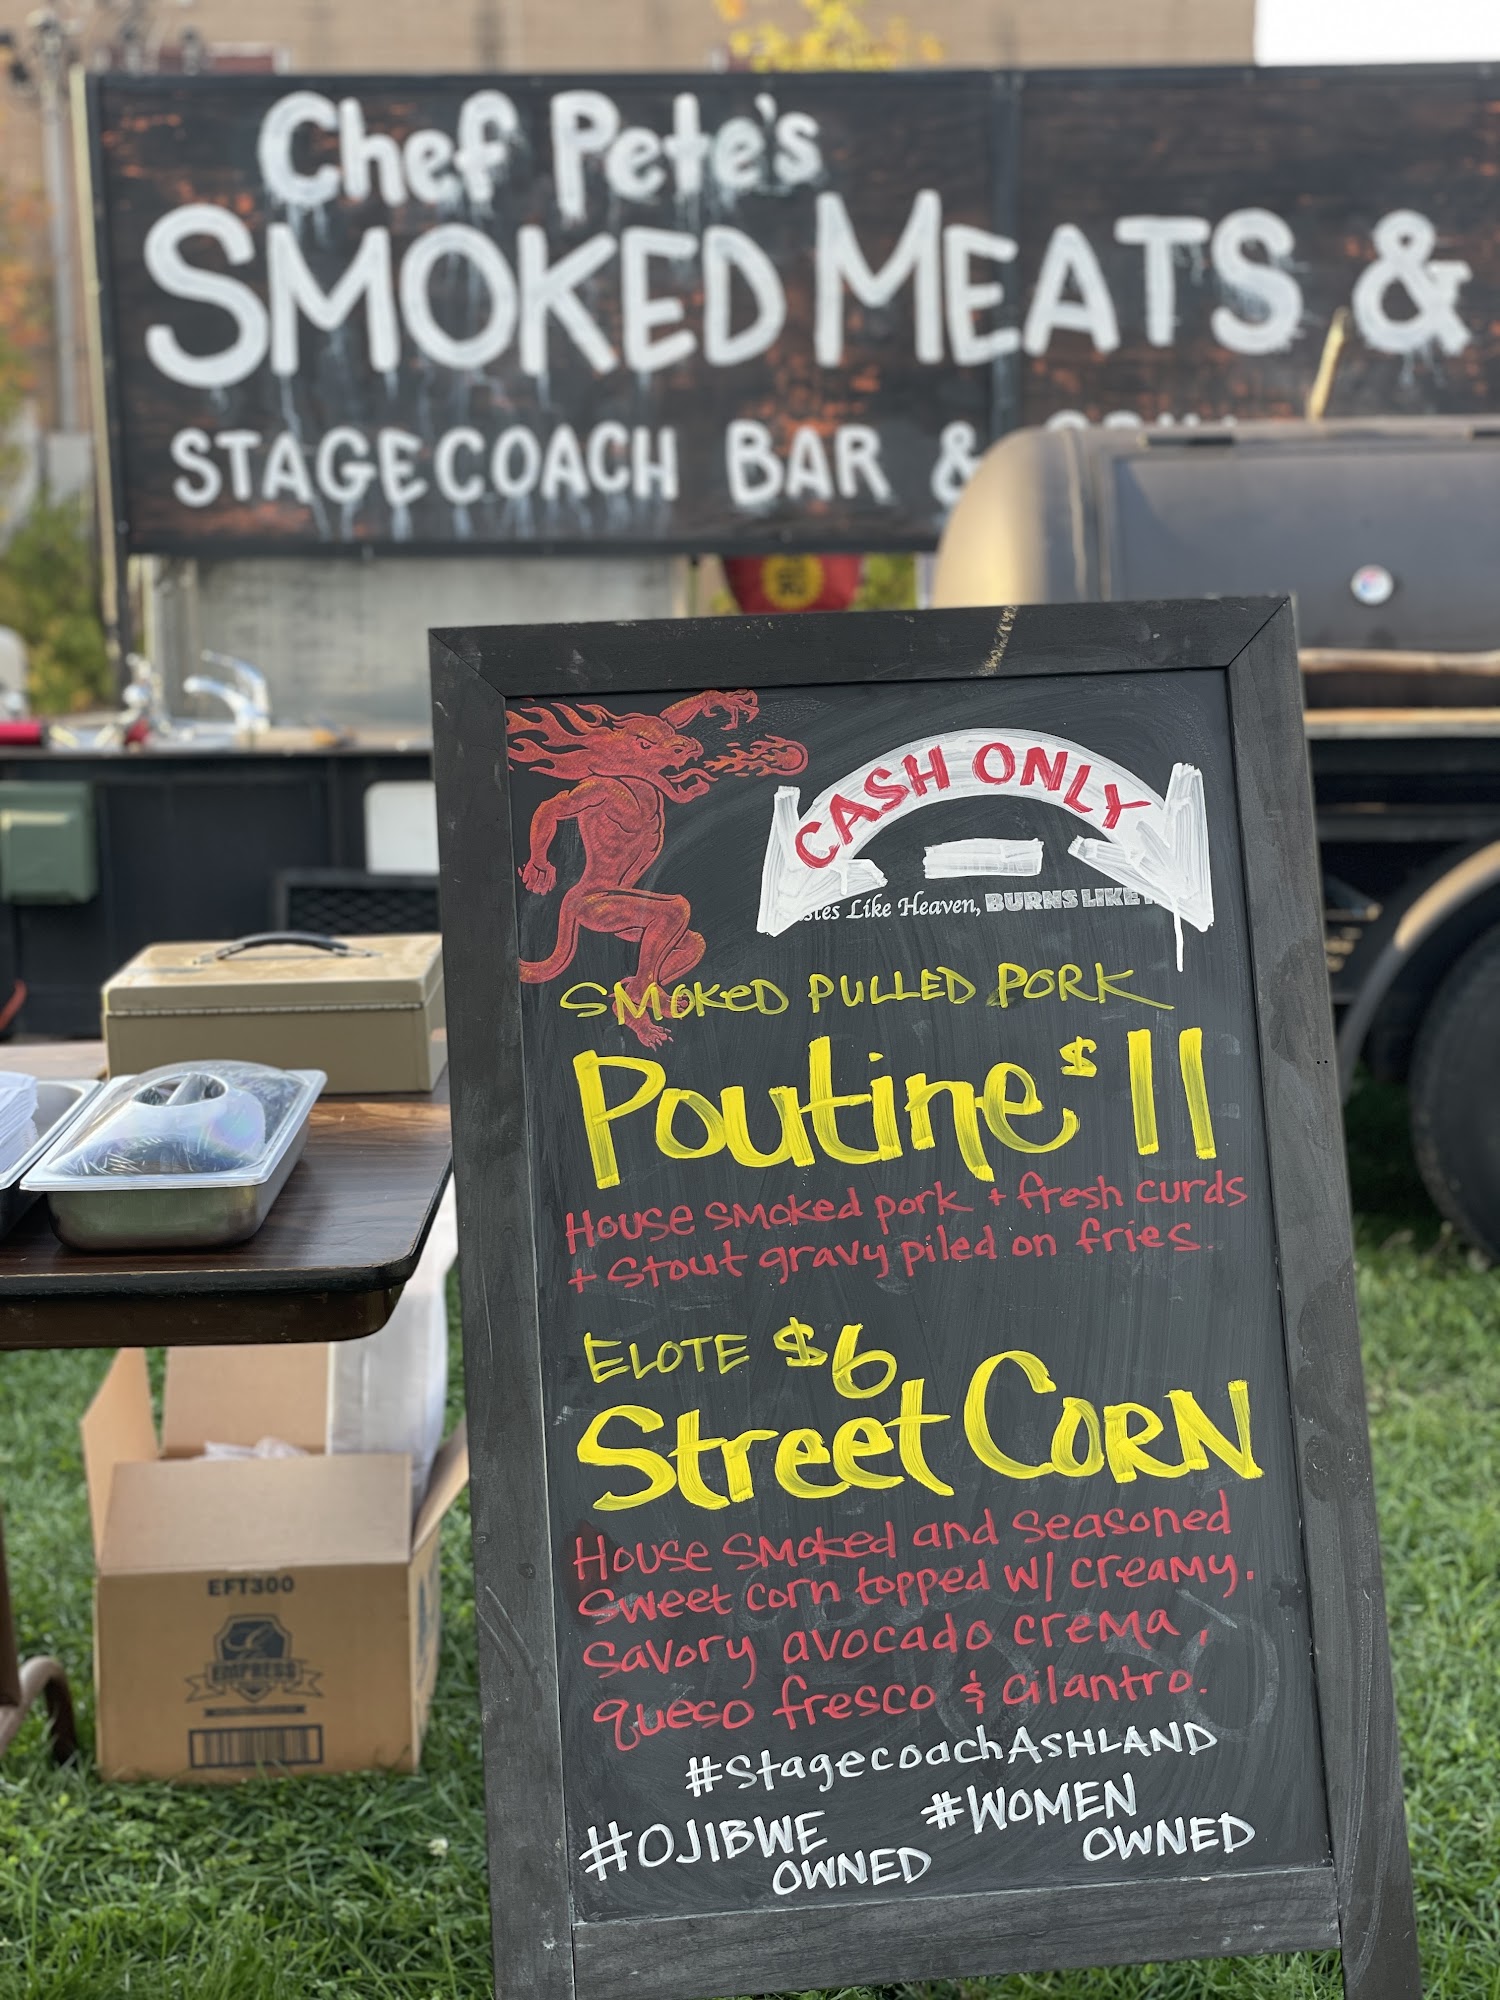 Chef Pete's
SMOKED MEATS &
STAGECOACH BAR &
CASH ONLY
Like Heaven, BURNS LIKE
SMOKED PULLED PORK
Poutine $11
House smoked pork + fresh curds
+ Stout gravy piled on fries.
ELOTE $6
Street CORN
House smoked and seasoned
sweet corn topped w/ creamy.
savory avocado crema,
queso fresco & cilantro.
#StagecoachASHLAND
#OJIBWE OWNED
#WOMEN OWNED
EFT300
EMPRESS